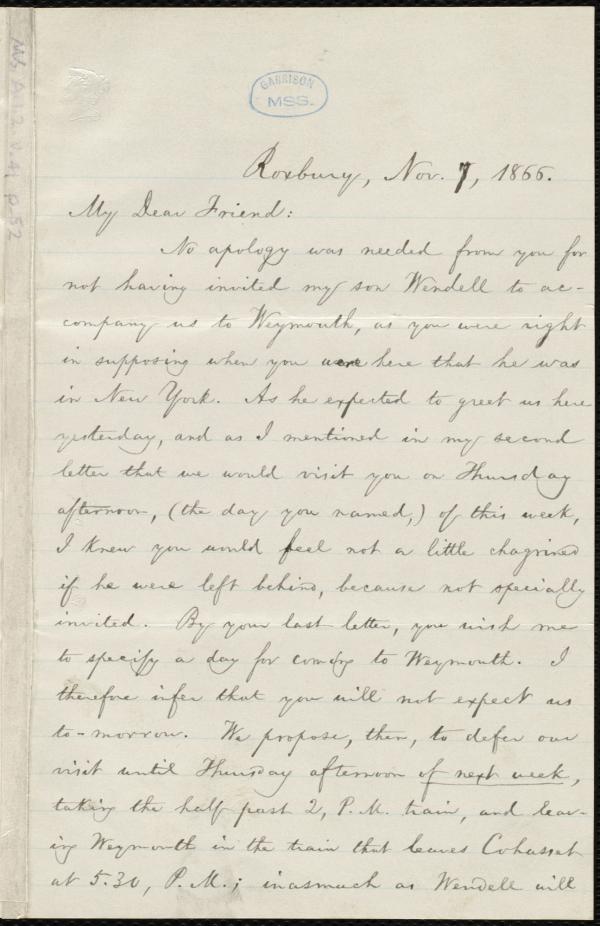 Ms A.1.2 v.41 p.52
GARRISON
MSS.
Roxbury, Nov. 7, 1866.
My Dear Friend:
No apology was needed from you for
not having invited my son Wendell to ac-
company us to Weymouth, as you were right
in supposing when you were here that he was
in New York. As he expected to greet us here
yesterday, and as I mentioned in my second
letter that we would visit you on Thursday
afternoon, (the day you named,) of this week,
I knew you would feel not a little chagrined
if he were left behind, because not specially
invited. By your last letter, you wish me
to specify a day for coming to Weymouth. I
therefore infer that you will not expect us
to-morrow. We propose, then, to defer our
visit until Thursday afternoon of next week,
taking the half past 2, P.M. train, and leav-
ing Weymouth in the train that leaves Cohasset
at 5.30, P.M.; inasmuch as Wendell will